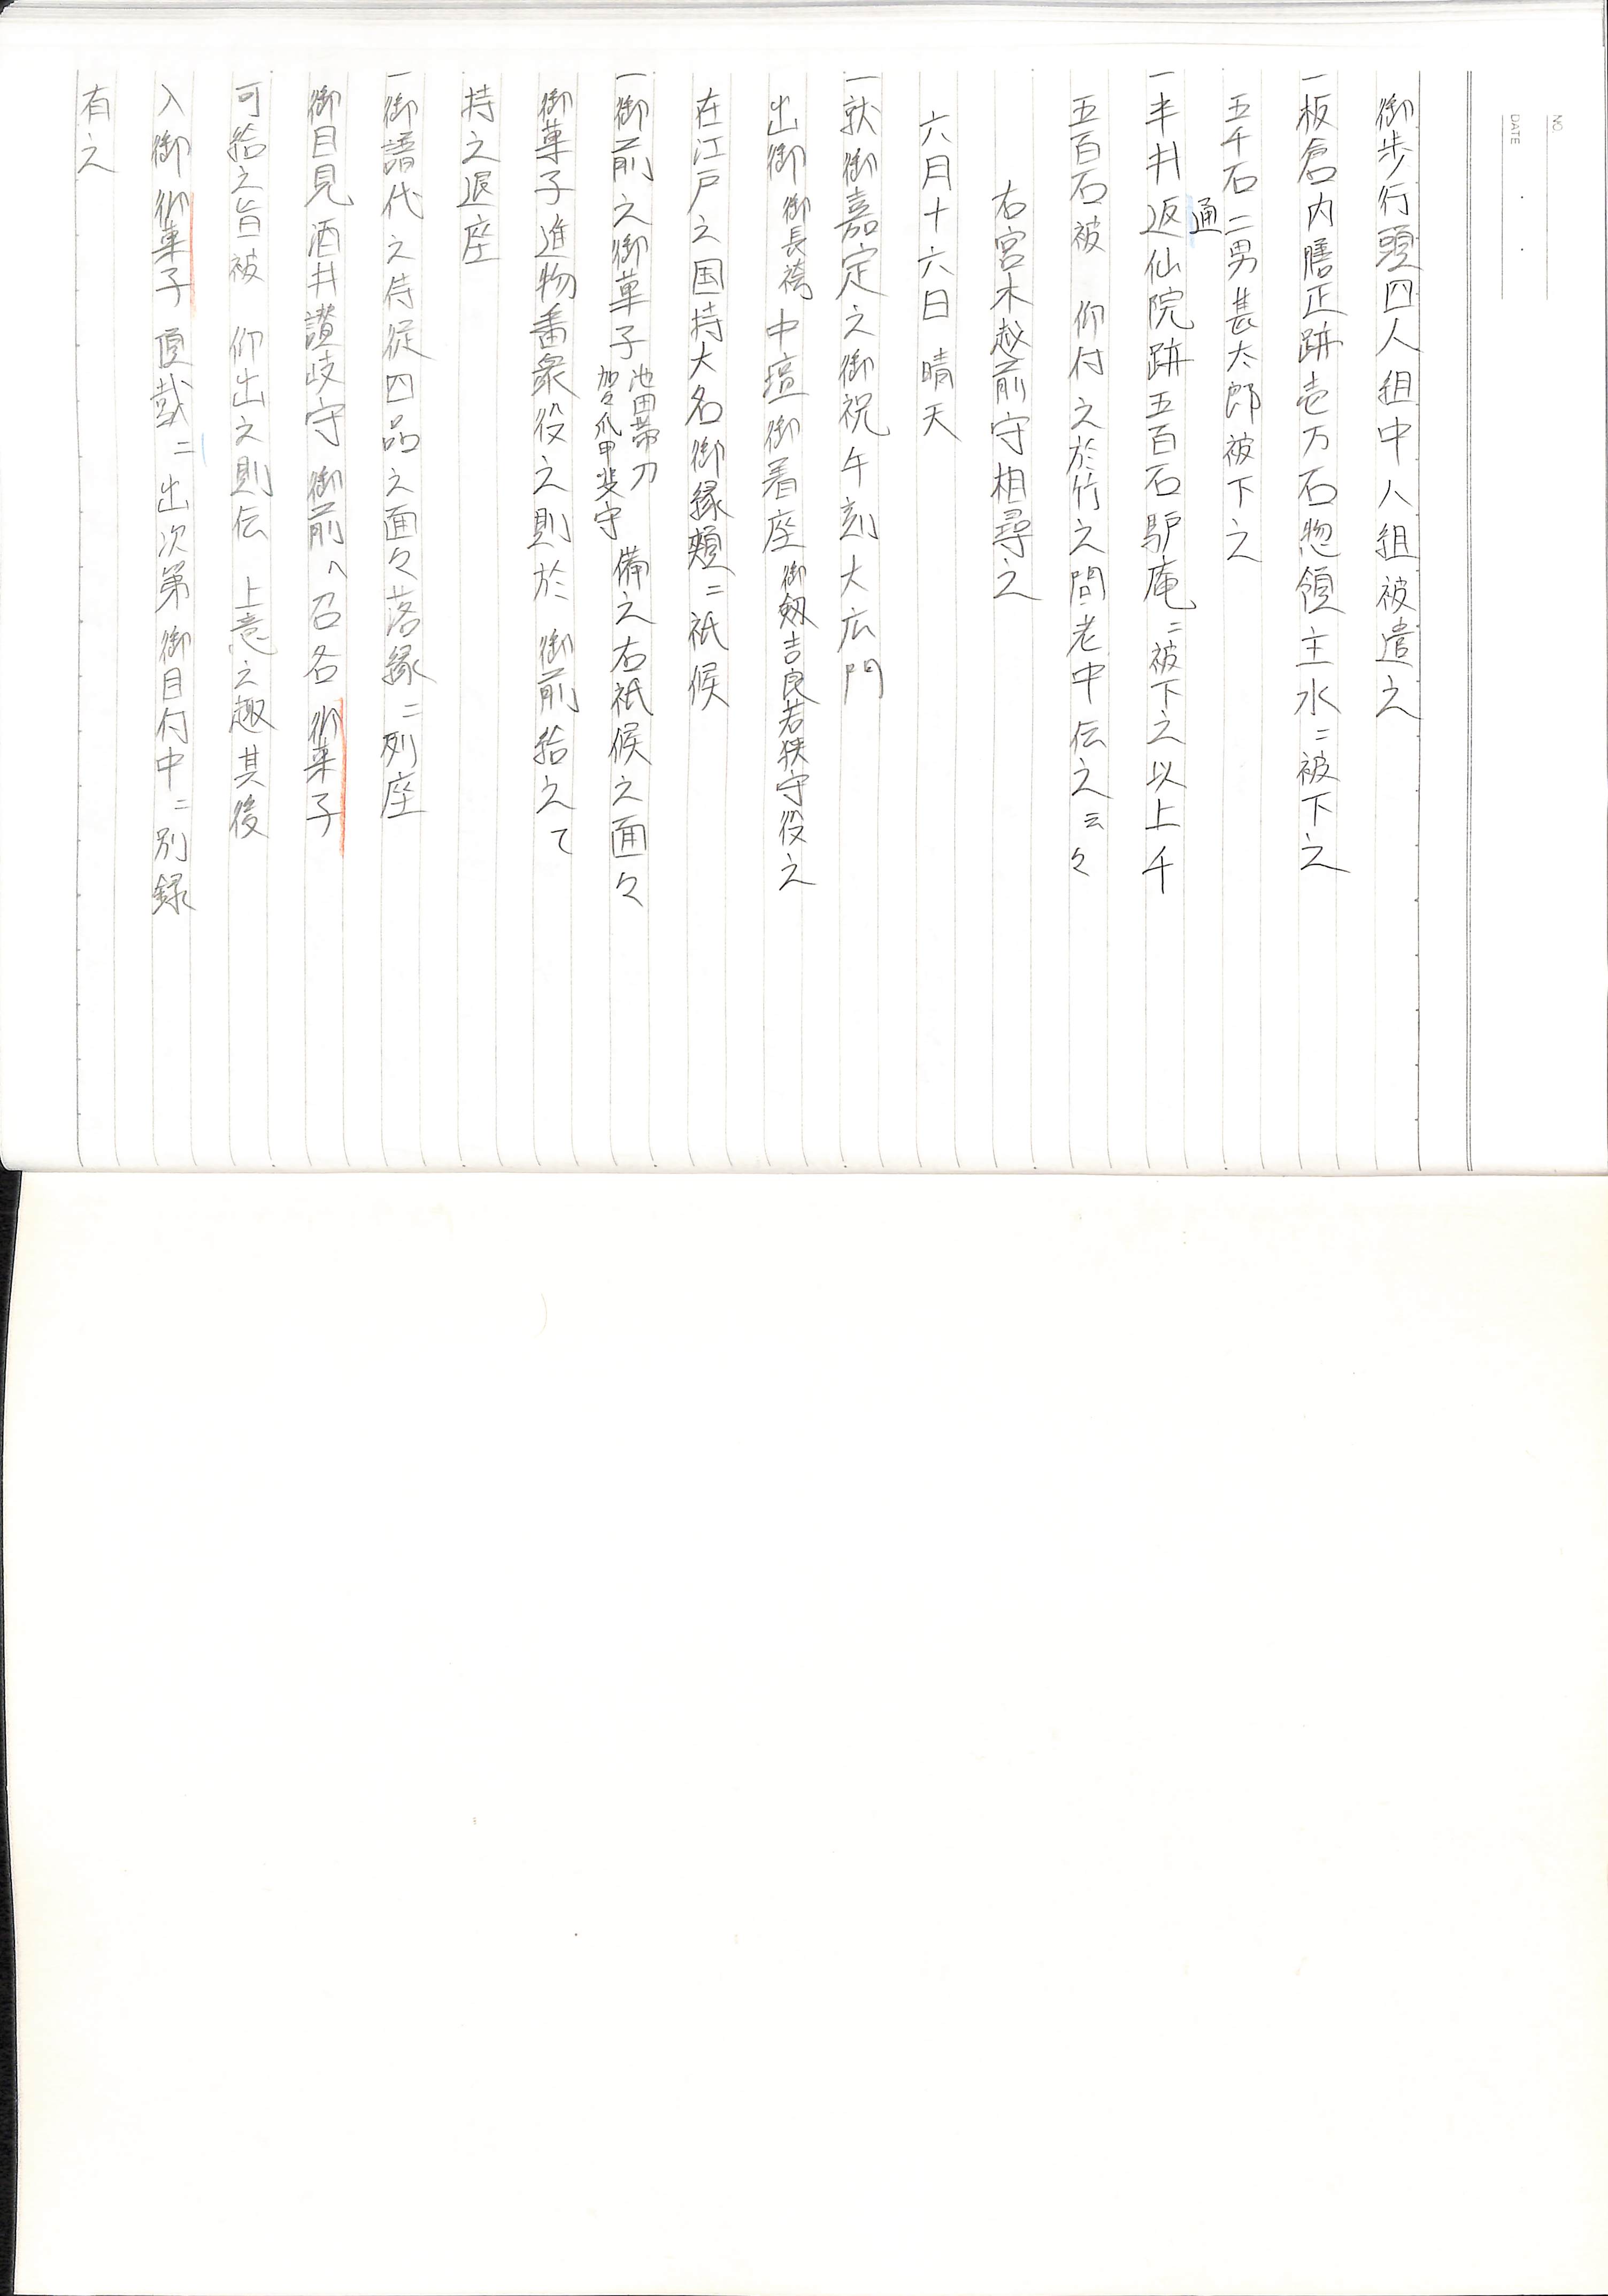 NO.
DATE
御歩行頭四人組中八組被遣之
一板倉内膳正跡壱万石惣領主水ニ被下之
五千石二男甚太郎被下之
通
一半井返仙院跡五百石驢庵ニ被下之以上千
五百石被 仰付之於竹之間老中伝之云々
右宮木越前守相尋之
六月十六日 晴天
一就御嘉定之御祝午刻大広門
出御 御長袴 中壇御着座 御剱吉良若狭守役之
在江戸之国持大名御縁頬ニ祇候
一御前之御菓子 池田帯刀 加々爪甲斐守 備之右祇候之面々
御菓子進物番衆役之則於 御前給之て
持之退座
一御譜代之侍従四品之面々落縁ニ列座
御目見酒井讃岐守 御前へ召各 御菓子
可給之旨被 仰出之則伝 上意之趣其後
入御 御菓子頂戴ニ出次第御目付中ニ別録
有之